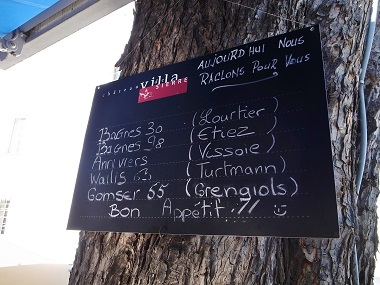 château
Villa
SIERRE
AUJOURD'HUI NOUS
RACLONS POUR VOUS
Bagnes 30 (Lourtier)
Bagnes 98 (Etiez)
Anniviers (Vissoie)
Wallis 63 (Turtmann)
Gomser 55 (Grengiols)
Bon Appétit !!!